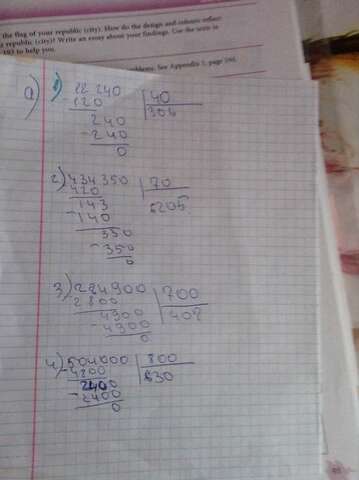 the flag of your republic (city). How do the design and colours reflect
republic (city)? Write an essay about your findings. Use the texts in
193 to help you.
problems. See Appendix 5, page
a) 1) 22 240 | 40
- 120 | 306
240
- 240
0
2) 434350 | 70
420 | 6205
143
- 140
350
- 350
0
3) 284900 | 700
2800 | 407
4900
- 4900
0
4) 504000 | 800
- 4800 | 630
2400
- 2400
0